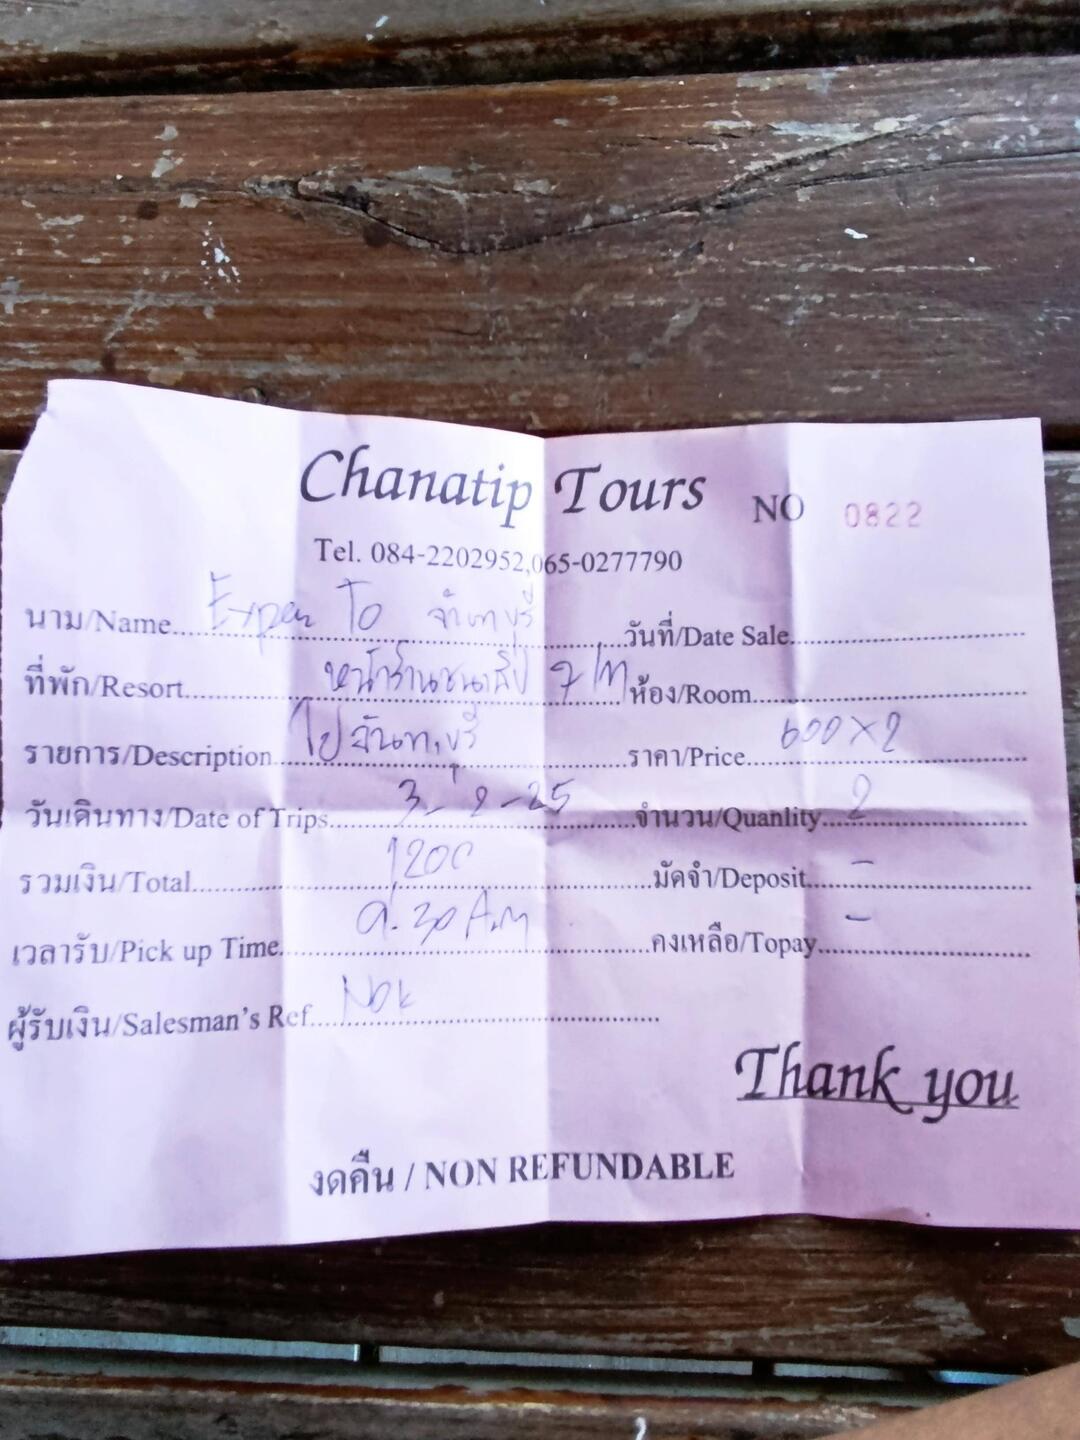 Chanatip Tours NO 0822
Tel. 084-2202952,065-0277790
นาม/Name To จันทบุรี วันที่/Date Sale
ที่พัก/Resort หน้าร้านชนาธิป ห้อง/Room
รายการ/Description ไปจันทบุรี ราคา/Price 600x2
วันเดินทาง/Date of Trips 3-2-25 จำนวน/Quanlity 2
รวมเงิน/Total 1200 มัดจำ/Deposit -
เวลารับ/Pick up Time 9.30 A.M คงเหลือ/Topay -
ผู้รับเงิน/Salesman's Ref. Nok
Thank you
งดคืน / NON REFUNDABLE